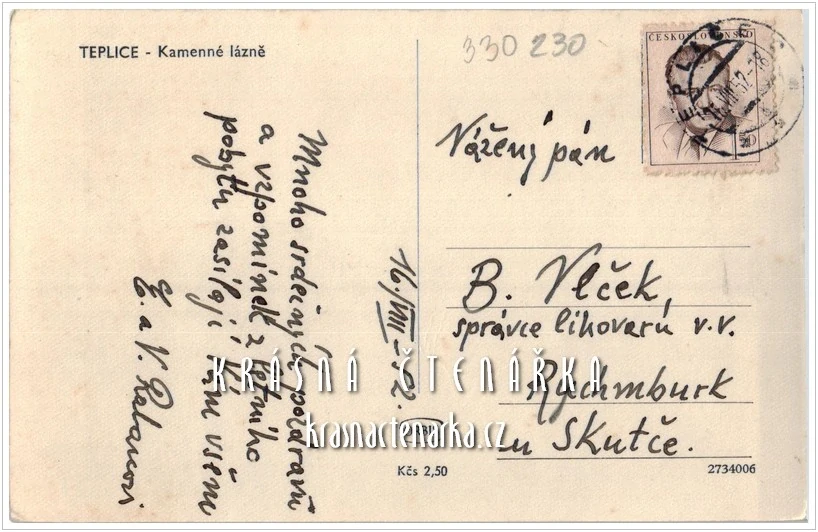 TEPLICE - Kamenné lázně
330 230
ČESKOSLOVENSKO
Mnoho srdečných pozdravů
a vzpomínek z letního
pobytu zasílají Vám všem
E. a V.
16/VIII - 52.
Vážený pán
B. Vlček,
správce lihovarů v.v.
Rychmburk
u Skutče.
KRÁSNÁ ČTENÁŘKA
krasnactenarka.cz
ORBIS
Kčs 2,50
2734006